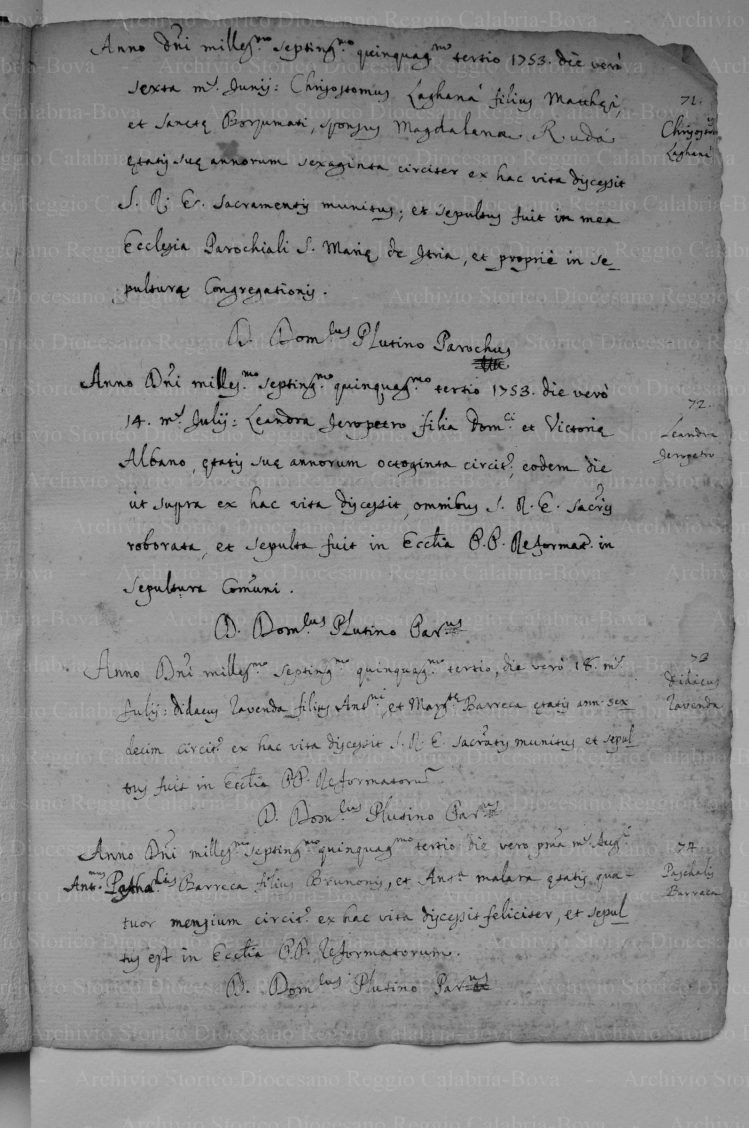 Anno Dñi milles.mo septing.mo quinquag.mo tertio 1753. die verò
sexta m.s Junij: Chrysostomus Laghanà filius Matthęi,
et Sanctę Borzumati, sponsus Magdalenæ Rudà
ętatis suę annorum sexaginta circiter ex hac vita discessit
S. R. E. Sacramentis munitus; et sepultus fuit in mea
Ecclesia Parochiali S. Marię de Itria, et propriè in se_
pultura Congregationis.
D. Dom.cus Plutino Parochus
71.
Chrysostom.us
Laghanà
Anno Dñi milles.mo septing.mo quinquag.mo tertio 1753. die verò
14. m.s Julij: Leandra Jeropetro filia Dom.ci et Victorię
Albano, ętatis suę annorum octoginta circit.r, eodem die
ùt supra ex hac vita discessit, omnibus S. R. E. sacr.is
roborata, et sepulta fuit in Eccl̃ia P.P. Reformat. in
sepultura Com̃uni.
D. Dom.cus Plutino Par.us
72.
Leandra
Jeropetro
Anno Dñi milles.mo septing.mo quinquag.mo tertio, die verò 18. m.s
Julij: Didacus Ravenda filius Ant.ni, et Marg.tę Barreca ętatis ann. sex
decim circit.r ex hac vita discessit S. R. E. sacr̃atis munitus et sepul
tus fuit in Eccl̃ia P.P. Reformatorũ
D. Dom.cus Plutino Par.us
73
Didacus
Ravenda
Anno Dñi milles.mo septing.mo quinquag.mo tertio die vero pm̃a m.s Aug.ti
Ant.nus Pascha.lis Barreca filius Brunonis, et Ant.ę malara ętatis qua-
tuor mensium circit.r ex hac vita discessit feliciter, et sepul
tus est in Eccl̃ia P.P. Reformatorum.
D. Dom.cus Plutino Par.us
74
Paschalis
Barreca
Archivio Storico Diocesano Reggio Calabria-Bova